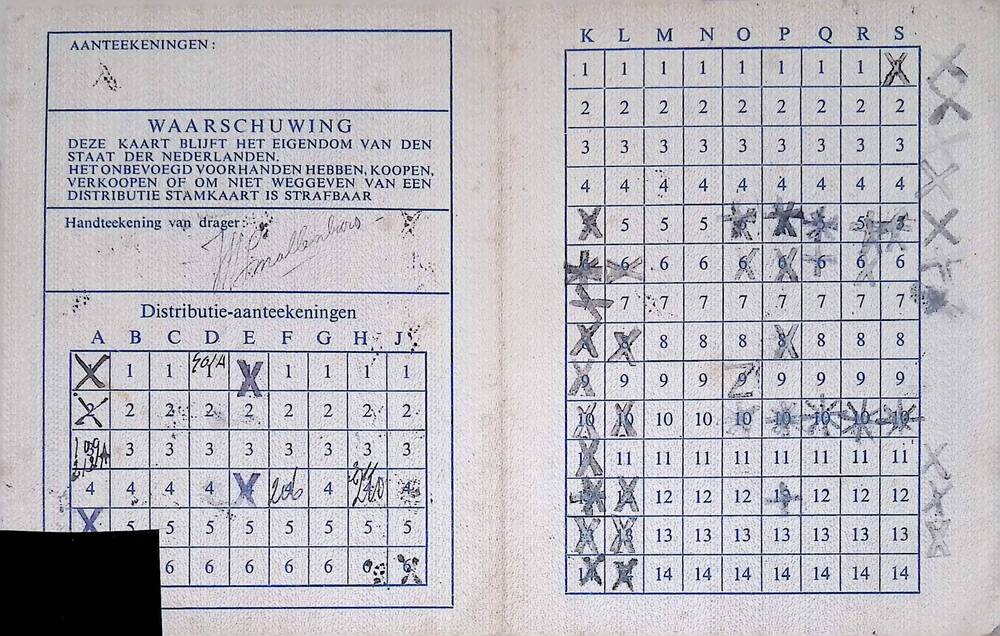 AANTEEKENINGEN:
WAARSCHUWING
DEZE KAART BLIJFT HET EIGENDOM VAN DEN
STAAT DER NEDERLANDEN.
HET ONBEVOEGD VOORHANDEN HEBBEN, KOOPEN,
VERKOOPEN OF OM NIET WEGGEVEN VAN EEN
DISTRIBUTIE STAMKAART IS STRAFBAAR
Handteekening van drager:
Distributie-aanteekeningen
A B C D E F G H J
1 1 1 1 1 1
2 2 2 2 2 2 2 2 2
3 3 3 3 3 3 3 3
4 4 4 4 206 4
5 5 5 5 5 5 5 5
6 6 6 6 6 6 6
K L M N O P Q R S
1 1 1 1 1 1 1 1
2 2 2 2 2 2 2 2 2
3 3 3 3 3 3 3 3 3
4 4 4 4 4 4 4 4 4
5 5 5 5
6 6 6 6 6 6 6 6
7 7 7 7 7 7 7 7
8 8 8 8 8 8 8
9 9 9 9 9 9 9 9 9
10 10 10 10 10 10 10 10 10
11 11 11 11 11 11 11 11
12 12 12 12 12 12 12
13 13 13 13 13 13 13
14 14 14 14 14 14 14